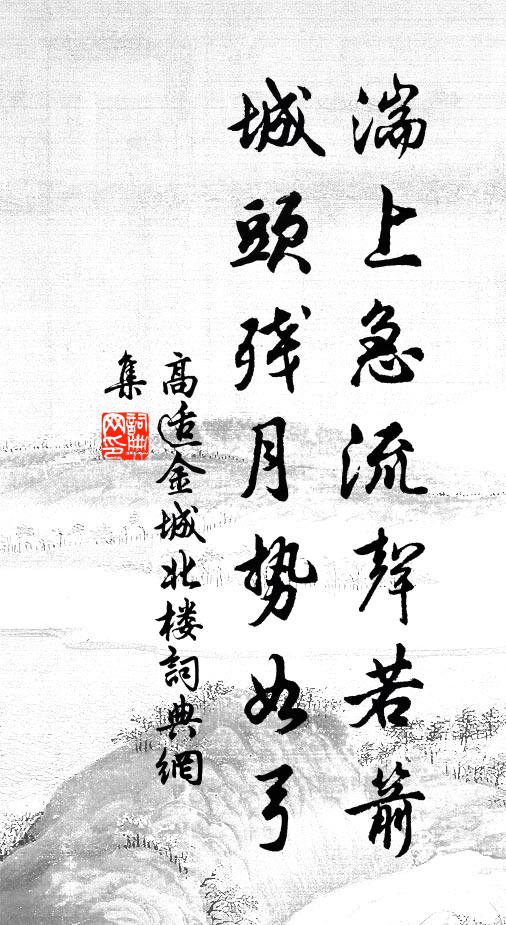 湍上急流聲若箭
城頭残月势如弓
高适金城北楼詞典網
集
詞典网印